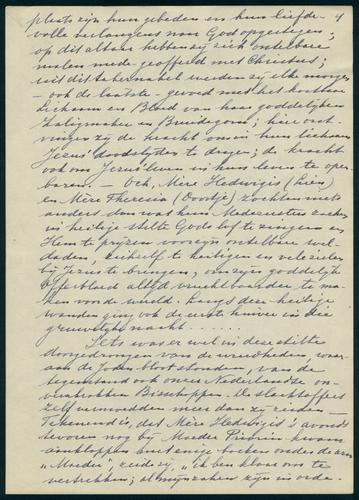 plaats zijn hun gebeden en hun liefde- 4
volle verlangens naar God opgestegen;
op dit altaar hebben zij zich ontelbare
malen mede-geofferd met Christus;
uit dit tabernakel werden zij elke morgen
- ook de laatste - gevoed met het kostbaar
Lichaam en Bloed van haar goddelijken
Zaligmaker en Bruidegom; hier ont-
vingen zij de kracht om in hun lichaam
Jezus' doodslijden te dragen; de kracht
ook om Jezus' leven in hun leven te open-
baren. - Och, Mère Hedwigis (Lien)
en Mère Theresia (Doortje) zochten niets
anders dan wat hun Medezusters zoeken
in heilige stilte Gods lof te zingen en
Hem te prijzen voor zijn ontelbare wel-
daden, zichzelf te heiligen en vele zielen
bij Jezus te brengen, om zijn goddelijk
Offerbloed altijd vruchtbaarder te ma-
ken voor de wereld. Langs deze heilige
wanden ging ook de eerste huiver in die
gruwelijke nacht......
Iets was er wel in deze stilte
doorgedrongen van de wreedheden, waar-
aan de Joden bloot stonden, van de
tegenstand ook onzer Nederlandse on-
verschrokken Bisschoppen. De slachtoffers
zelf vermoedden meer dan zij zeiden -
Tekenend is, dat Mère Hedwigis 's avonds
tevoren nog bij Moeder Priorin kwam
aankloppen
"Moeder", zeide zij, "ik ben klaar om te
vertrekken; al mijn zaken zijn in orde.